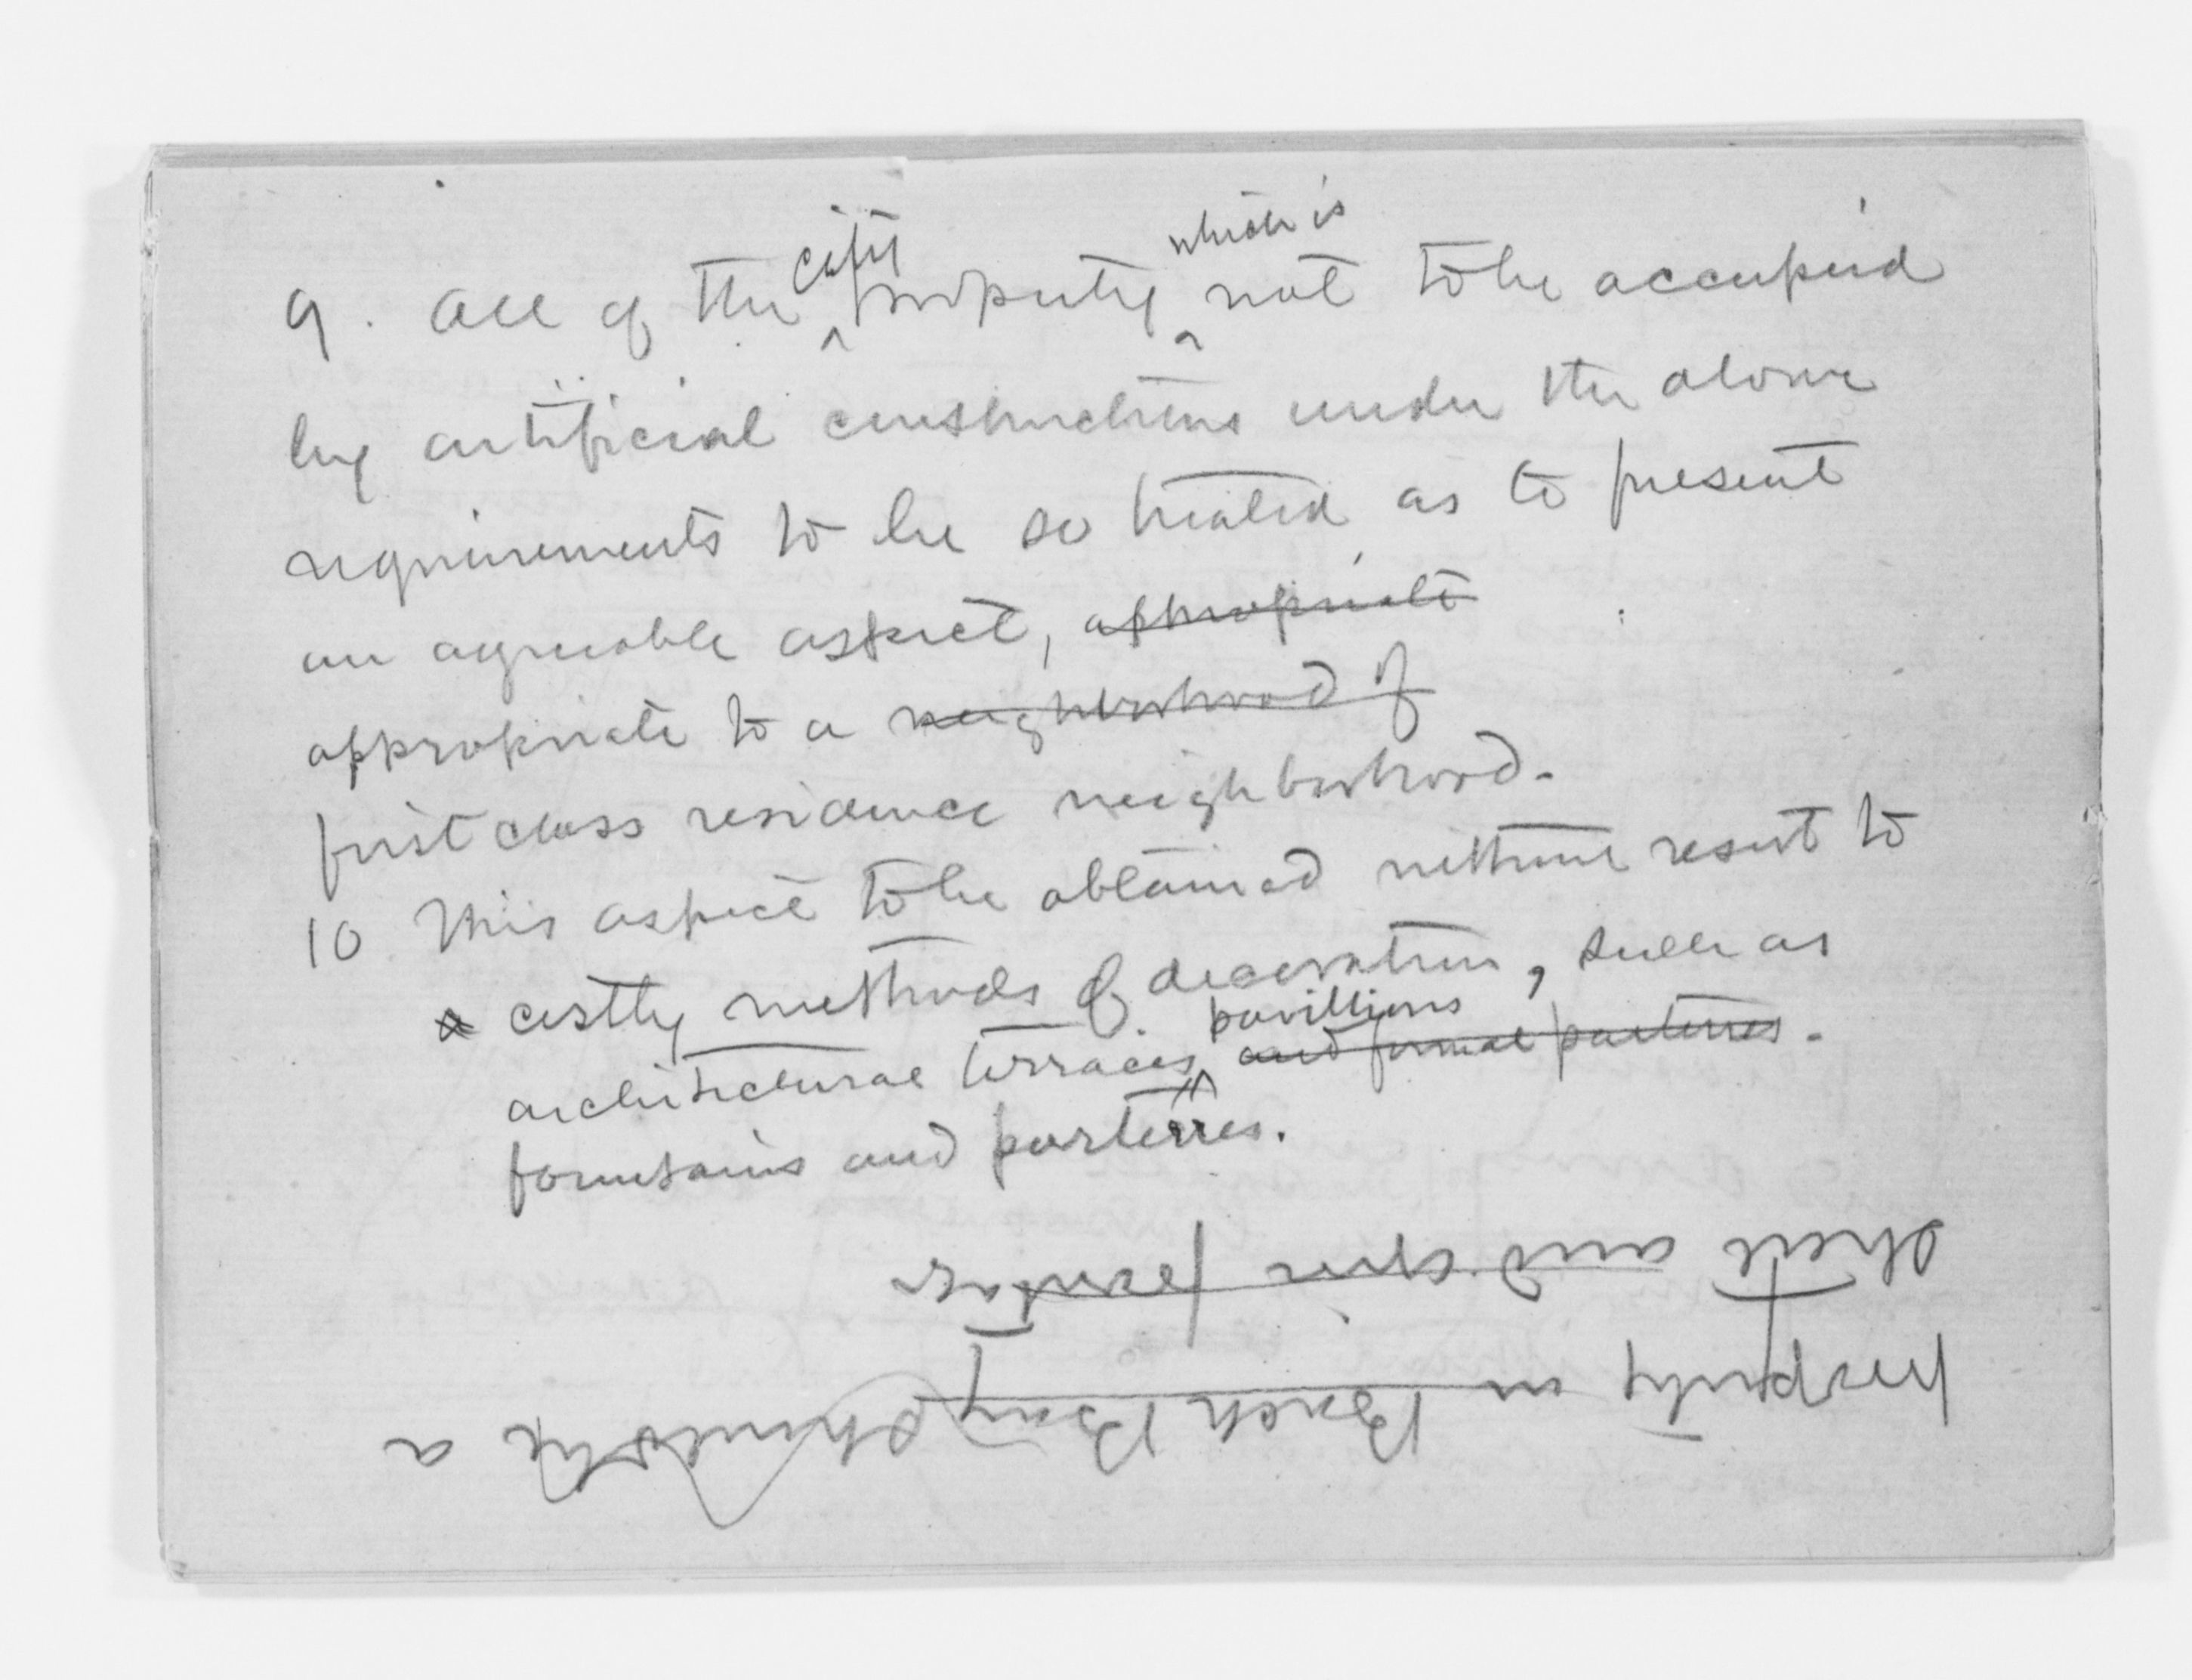 9. All of the city property which is not to be occupied
by artificial constructions under the above
requirements to be so treated as to present
an agreeable aspect, appropriate
appropriate to a neighborhood of
first class residence neighborhood.
10 This aspect to be obtained without resort to
a costly methods of decoration, such as
architectural terraces, pavillions and formal parterres.
fountains and parterres.
property in Back Bay should be a